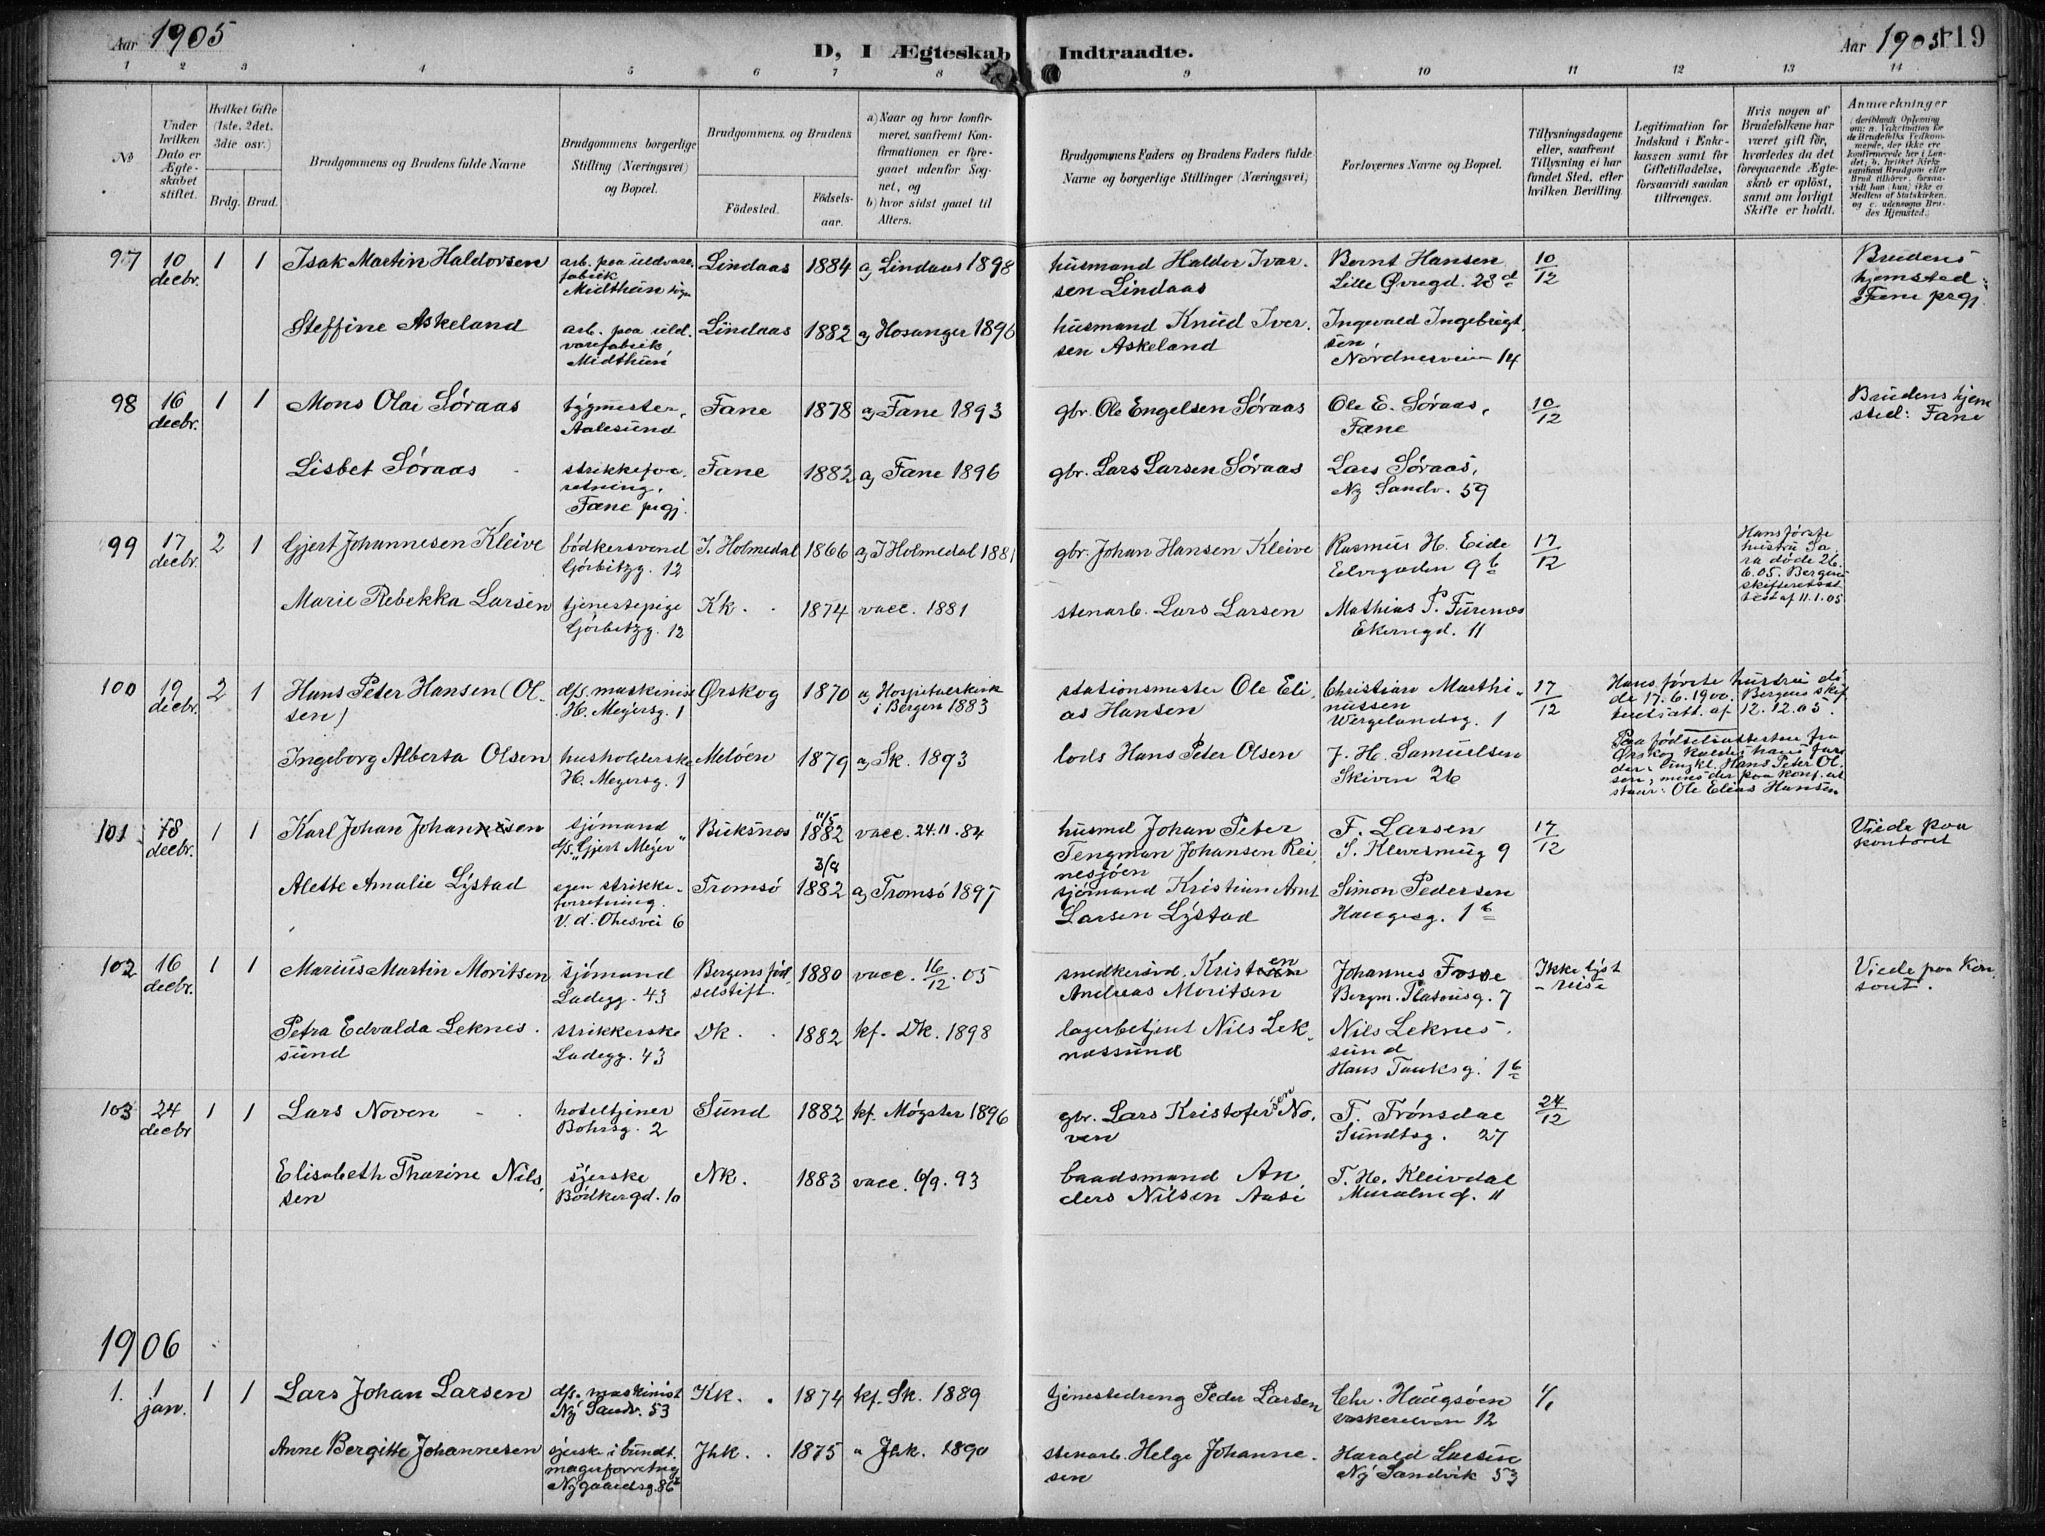 Aar 1905
D, I Ægteskab Indtraadte.
Aar 1905
119
1 2 3 4 5 6 7 8 9 10 11 12 13 14
No
Under hvilken Dato er Ægteskabet stiftet.
Hvilket Gifte (1ste, 2det, 3die osv.)
Brdg. Brud.
Brudgommens og Brudens fulde Navne
Brudgommens borgerlige Stilling (Næringsvei) og Bopæl.
Brudgommens og Brudens
Fødested.
Fødselsaar.
a) Naar og hvor konfirmeret, saafremt Konfirmationen er foregaaet udenfor Sognet, og
b) hvor sidst gaaet til Alters.
Brudgommens Faders og Brudens Faders fulde Navne og borgerlige Stillinger (Næringsvei)
Forlovernes Navne og Bopæl.
Tillysningsdagene eller, saafremt Tillysning ei har fundet Sted, efter hvilken Bevilling.
Legitimation for Indskud i Enkekassen samt for Giftetilladelse, forsaavidt saadan tiltrænges.
Hvis nogen af Brudefolkene har været gift før, hvorledes da det foregaaende Ægteskab er opløst, samt om lovligt Skifte er holdt.
Anmærkninger
97 10 decbr. 1 1 Isak Martin Haldorsen
arb. paa uldvarefabrik Midthun
Lindaas 1884 a) Lindaas 1898
husmand Haldor Ivarsen Lindaas
Bernt Hansen
Lille Øvregd. 28 d
10/12
Brudens hjemsted: Fane prgj.
Steffine Askeland
arb. paa uldvarefabrik Midthun
Lindaas 1882 a) Hosanger 1896
husmand Knud Iversen Askeland
Ingevald Ingebrigtsen
Nordnesveien 14
98 16 decbr. 1 1 Mons Olai Søraas
bygmester, Aalesund
Fane 1878 a) Fane 1893
gbr. Ole Engelsen Søraas
Ole E. Søraas, Fane
10/12
Brudens hjemsted: Fane
Lisbet Søraas
strikkeforretning, Fane prgj.
Fane 1882 a) Fane 1896
gbr. Lars Larsen Søraas
Lars Søraas,
Ny Sandv. 59
99 17 decbr. 2 1 Gjert Johannesen Kleive
bødkersvend
Gjørbitzg. 12
I. Holmedal 1866 a) I Holmedal 1881
gbr. Johan Hansen Kleive
Rasmus H. Eide
Elvegaden 9 b
17/12
Hans første hustru Sara døde 26.6.05. Bergens skifteretsattest af 11.1.05
Marie Rebekka Larsen
tjenestepige
Gjørbitzg. 12
Kk. 1874 vacc. 1881
stenarb. Lars Larsen
Mathias P. Furenæs
Ekrengd. 11
100 19 decbr. 2 1 Hans Peter Hansen (Olsen)
d/s. maskinist
H. Meyersg. 1
Ørskog 1870 a) Hospitalskirk i Bergen 1883
stationsmester Ole Elias Hansen
Christian Marthinussen
Wergelandsg. 1
17/12
Hans første hustru døde 17.6.1900. Bergens skifteretsatt. af 12.12.05.
Paa fødselsattesten fra Ørskog kaldes hans fader: Hans Peter Olsen, mens der paa konf. at staar: Ole Elias Hansen
Ingeborg Alberta Olsen
husholderske
H. Meyersg. 1
Meløen 1879 a) Sk. 1893
lods Hans Peter Olsen
J. H. Samuelsen
Skiven 26
101 18 decbr. 1 1 Karl Johan Johannesen
sjømand
d/s. "Gjert Meyer"
Buksnes 11/5 1882 vacc. 24.11.84
husmd Johan Peter Tengman Johansen Reinesjøen
F. Larsen
S. Klevesmug 9
17/12
Viede paa kontoret
Alette Amalie Lystad
egen strikkeforretning.
V. d. Ohesvei 6
Tromsø 3/8 1882 a) Tromsø 1897
sjømand Kristian Arnt Larsen Lystad
Simon Pedersen
Haugesg. 1 b
102 16 decbr. 1 1 Marius Martin Moritsen
sjømand
Ladegg. 43
Bergens fødselstift. 1880 vacc. 16/12.05
snedkersvd. Kristen Andreas Moritsen
Johannes Fosse
Bergm. Platousg. 7
Ikke lyst
- reise
Viede paa Kontoret.
Petra Edvalda Leknessund
strikkerske
Ladegg. 43
Dk. 1882 kf. Dk. 1898
lagerbetjent Nils Leknessund
Nils Leknessund
Hans Tanksg. 1 b
103 24 decbr 1 1 Lars Noven
hoteltjener
Bohrsg. 2
Sund 1882 kf. Møgster 1896
gbr. Lars Kristofersen Noven
T. Trønsdal
Sundtsg. 27
24/12
Elisabeth Tharine Nilssen
syerske
Bødkergd. 10
Nk. 1883 vacc. 6/9.93
baadsmand Anders Nilsen Aase
T. H. Kleivdal
Muralmg. 11
1906
1. 1 jan. 1 1 Lars Johan Larsen
d/s. maskinist
Ny Sandv. 53
Kk. 1874 kf. Sk. 1889
tjenestedreng Peder Larsen
Chr. Haugsøen
Vaskerelven 12
1/1
Anne Bergitte Johannesen
syerske i bundtmagerforretng
Nygaardsg. 86
Jhk. 1875 a Jhk. 1890
stenarb. Helge Johannesen
Harald Larsen
Ny Sandvik 53